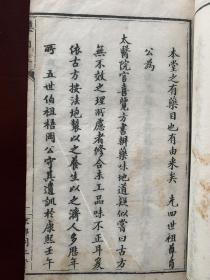 本堂之有藥目也有由來矣 先四世祖尊育
公為
太醫院官喜覽方書辯藥味地道疑似嘗曰古方
無不效之理所慮者修合未工品味不正耳爰
依古方按法炮製以之養生以之濟人多歷年
所 五世伯祖梧岡公守其遺訓於康熙壬午